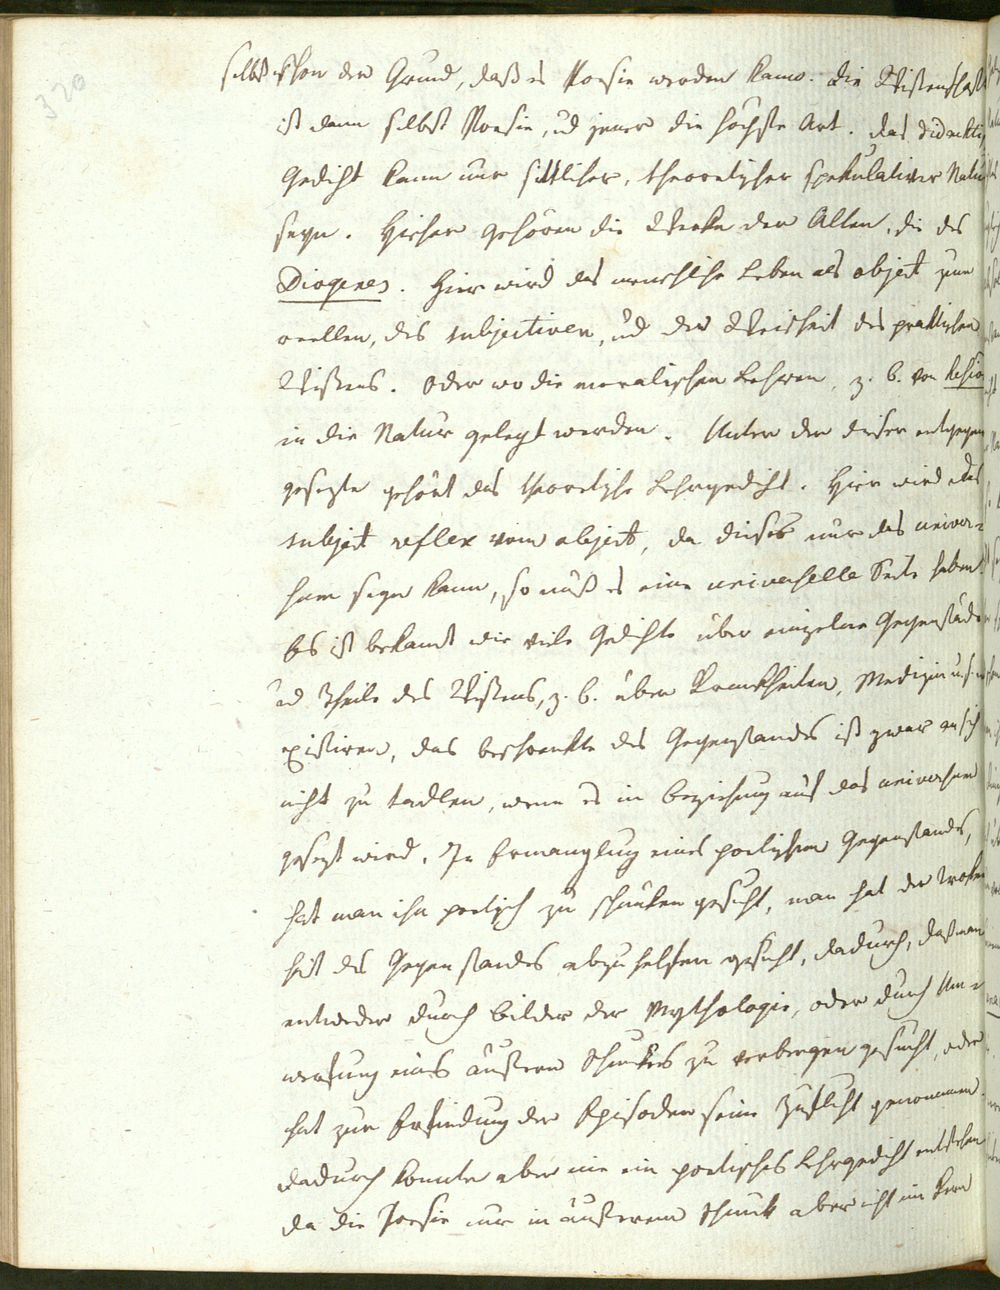 320
selbst schon der Grund, daß es Poesie werden kann. Die Wissenschaft
ist dann selbst Poesie, ud zwar die höchste Art. Das didaktisch
Gedicht kann nur sittlicher, theoretischer spekulativer Natur
seyn. Hieher gehören die Werke der Alten, die des
Diogenes. Hier wird das menschliche Leben als object zum
reellen, des subjectiven, ud der Weisheit des praktischen
Wissens. Oder wo die moralischen Lehren, z. B. von Hesio
in die Natur gelegt werden. Unter der dieser entgegen
gesezte gehört das theoretische Lehrgedicht. Hier wird das
subject reflex vom object, da dieses nur das univer-
sum seyn kann, so muß es eine universelle Seite haben.
Es ist bekannt wie viele Gedichte über einzelne Gegenstände
ud Theile des Wissens, z. B. über Krankheiten, Medizin u. s. w
existiren, das beschrenkte des Gegenstandes ist zwar an sich
nicht zu tadlen, wenn es in beziehung auf das universum
gesezt wird. In Ermanglung eines poetischen Gegenstandes,
hat man ihn poetisch zu schmüken gesucht, man hat der Troken
heit des Gegenstandes abzuhelfen gesucht, dadurch, daß man
entweder durch bilder der Mythologie, oder durch Um-
werfung eines äußern Schmukes zu verbergen gesucht, oder
hat zur Erfindung der Episoden seine Zuflucht genommen.
dadurch konnte aber nie ein poetisches Lehrgedicht entstehen
da die Poesie nur in äußerem Schmuk aber nicht im Kern